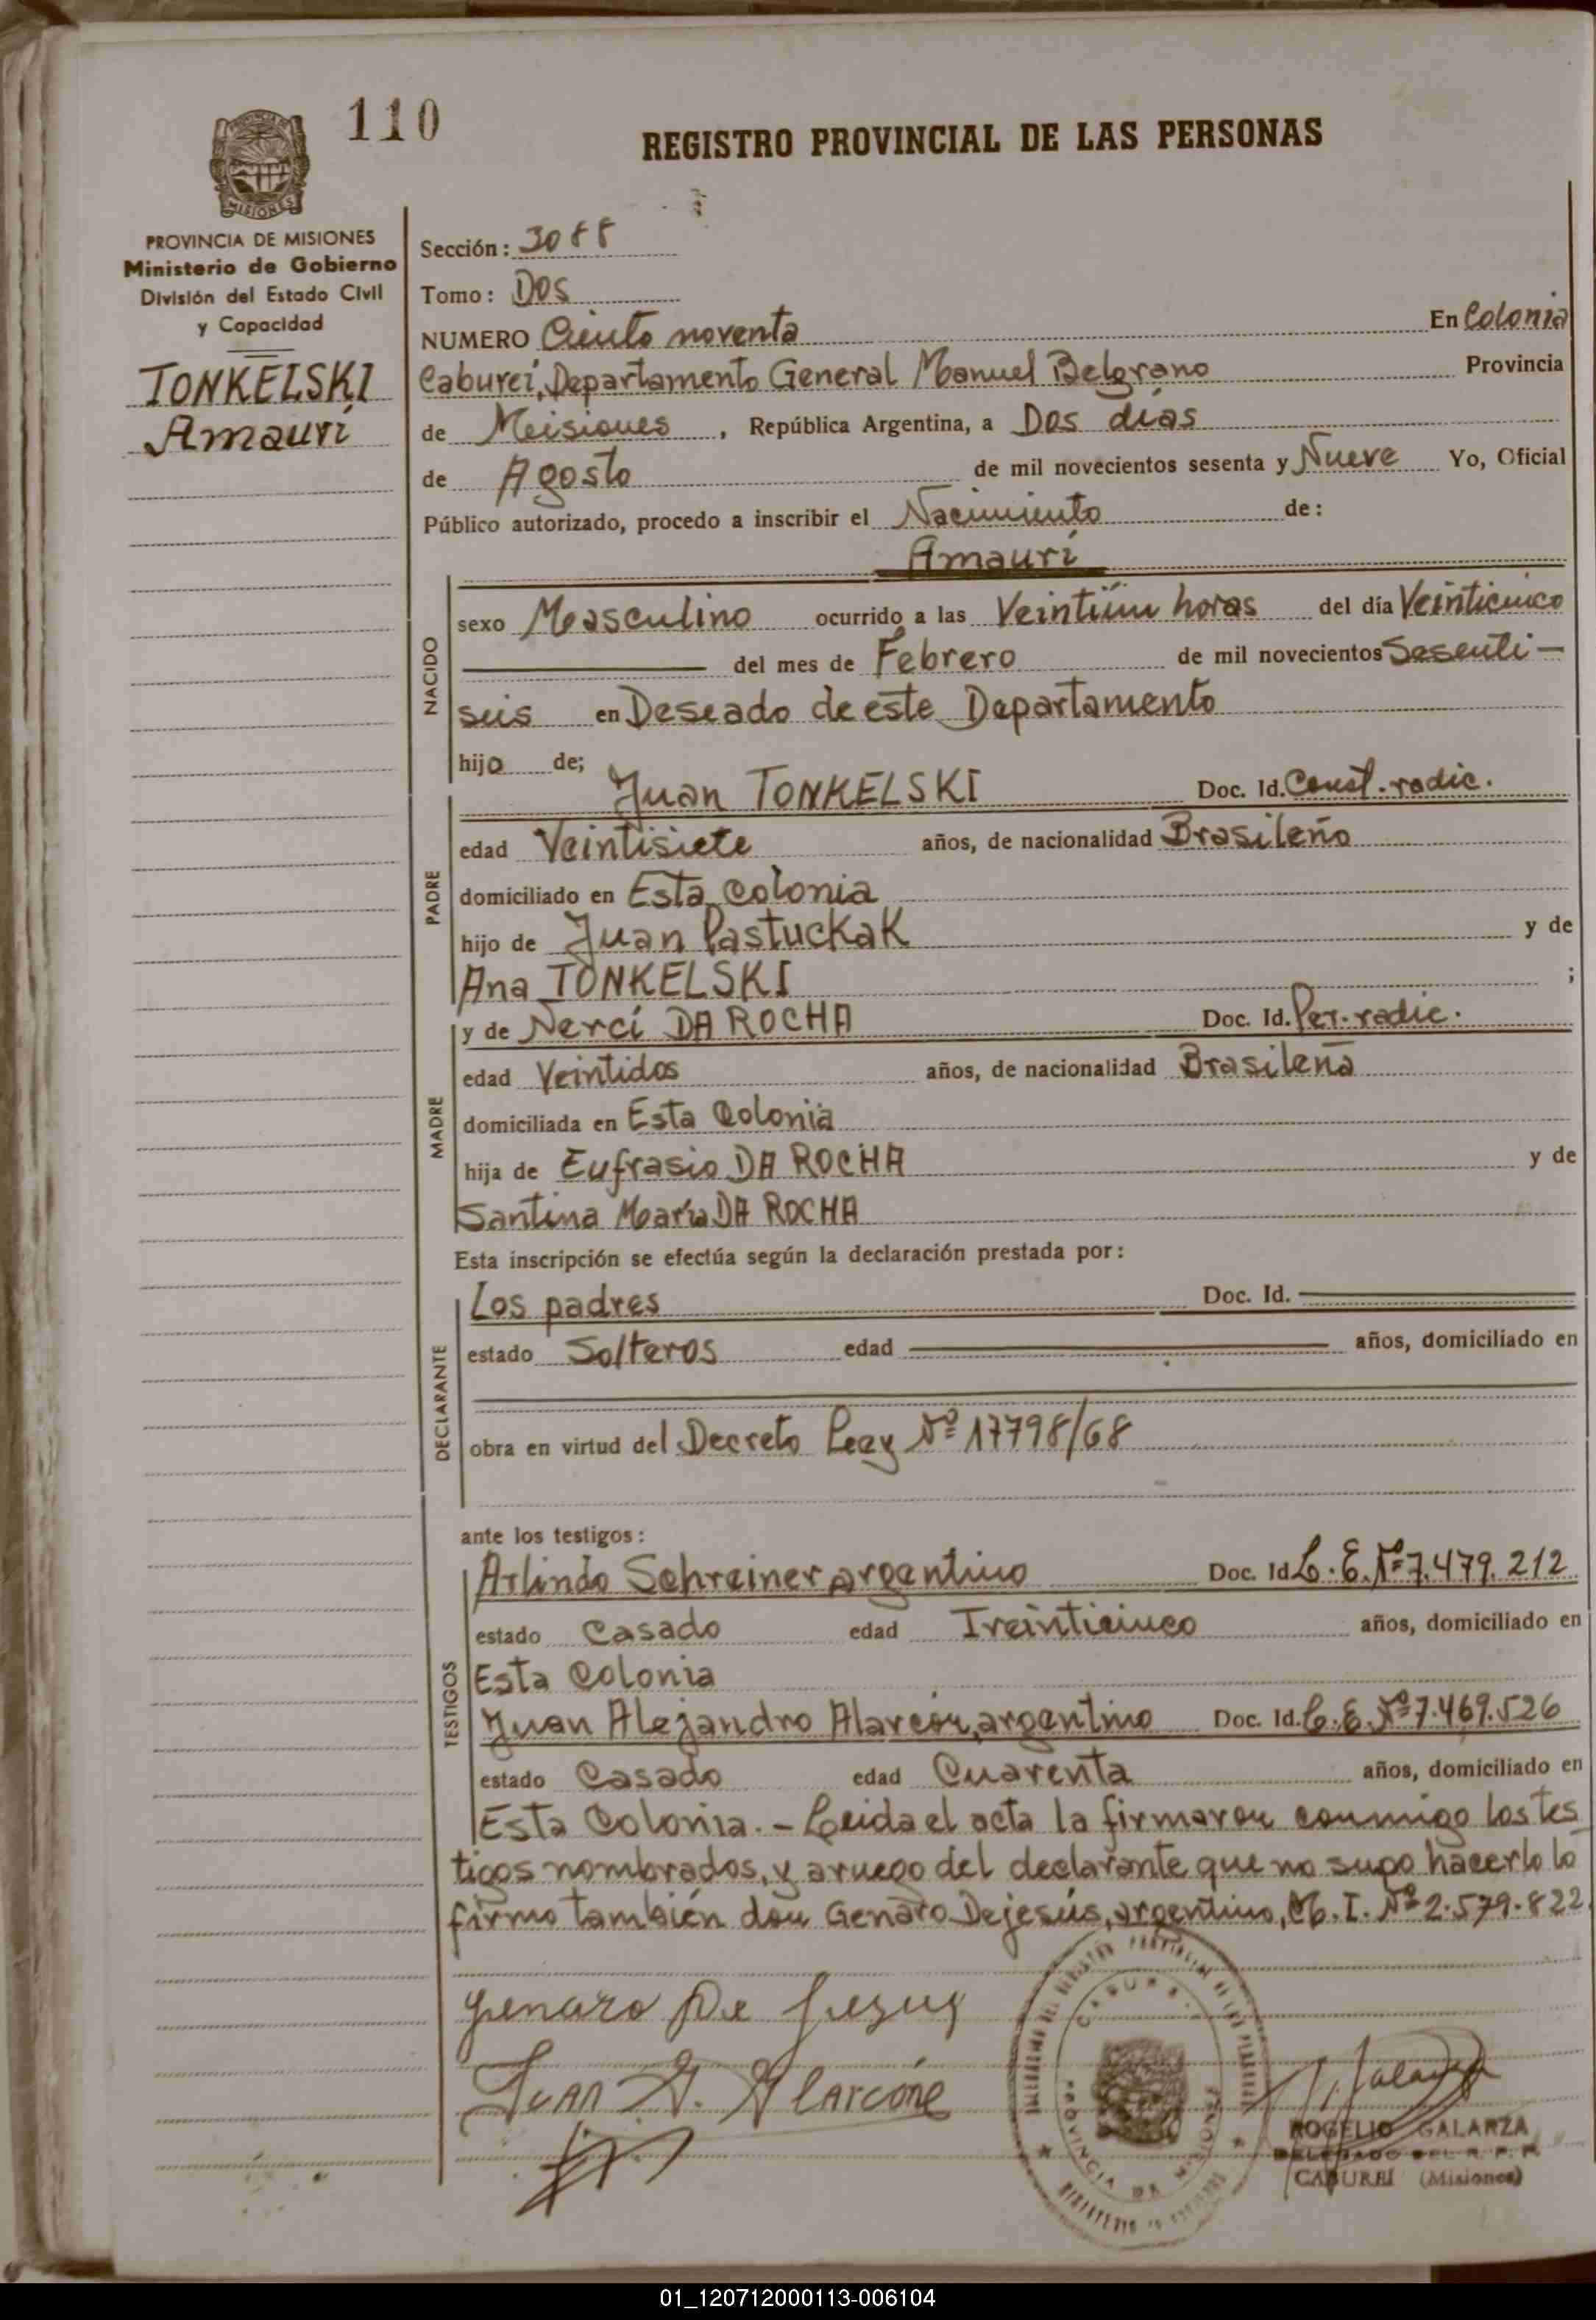 110
REGISTRO PROVINCIAL DE LAS PERSONAS
MISIONES
PROVINCIA DE MISIONES
Ministerio de Gobierno
División del Estado Civil
y Capacidad
TONKELSKI
Amaurí
Sección: 3088
Tomo: Dos
NUMERO Ciento noventa En Colonia
Caburei, Departamento General Manuel Belgrano Provincia
de Misiones, República Argentina, a Dos días
de Agosto de mil novecientos sesenta y Nueve Yo, Oficial
Público autorizado, procedo a inscribir el Nacimiento de:
Amaurí
NACIDO
sexo Masculino ocurrido a las Veintiún horas del día Veinticinco
del mes de Febrero de mil novecientos Sesenti-
seis en Deseado de este Departamento
hijo de;
PADRE
Juan TONKELSKI Doc. Id. Const. radic.
edad Veintisiete años, de nacionalidad Brasileño
domiciliado en Esta Colonia
hijo de Juan Pastuckak y de
Ana TONKELSKI ;
MADRE
y de Nerci DA ROCHA Doc. Id. Per. radic.
edad Veintidos años, de nacionalidad Brasileña
domiciliada en Esta Colonia
hija de Eufrasio DA ROCHA y de
Santina María DA ROCHA
Esta inscripción se efectúa según la declaración prestada por:
DECLARANTE
Los padres Doc. Id.
estado Solteros edad años, domiciliado en
obra en virtud del Decreto Ley Nº 17798/68
ante los testigos:
TESTIGOS
Arlindo Schreiner argentino Doc. Id. L. E. Nº 7.479.212
estado Casado edad Treinticinco años, domiciliado en
Esta Colonia
Juan Alejandro Alarcón, argentino Doc. Id. L. E. Nº 7.469.526
estado Casado edad Cuarenta años, domiciliado en
Esta Colonia. - Leida el acta la firmaron conmigo los tes
tigos nombrados, y a ruego del declarante que no supo hacerlo lo
firmo también don Genaro Dejesús, argentino, M. I. Nº 2.579.822
Genaro De Jesus
Juan A. Alarcone
PROVINCIA DE
ROGELIO GALARZA
DELEGADO DEL R. P. P.
CABUREI (Misiones)
01_120712000113-006104